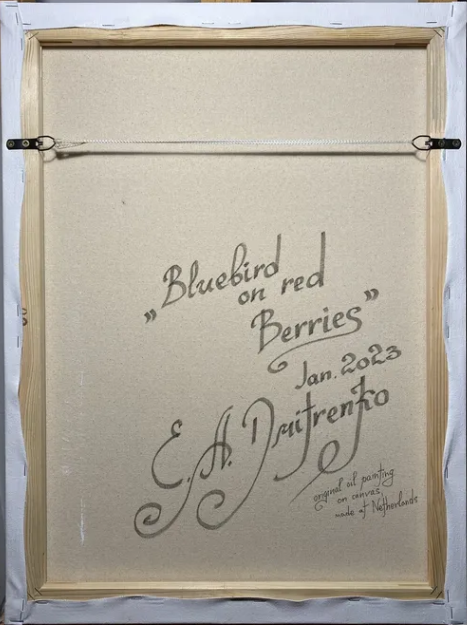 „Bluebird
on red
Berries”
Jan. 2023
E. A. Dmitrenko
original oil painting
on canvas,
made at Netherlands